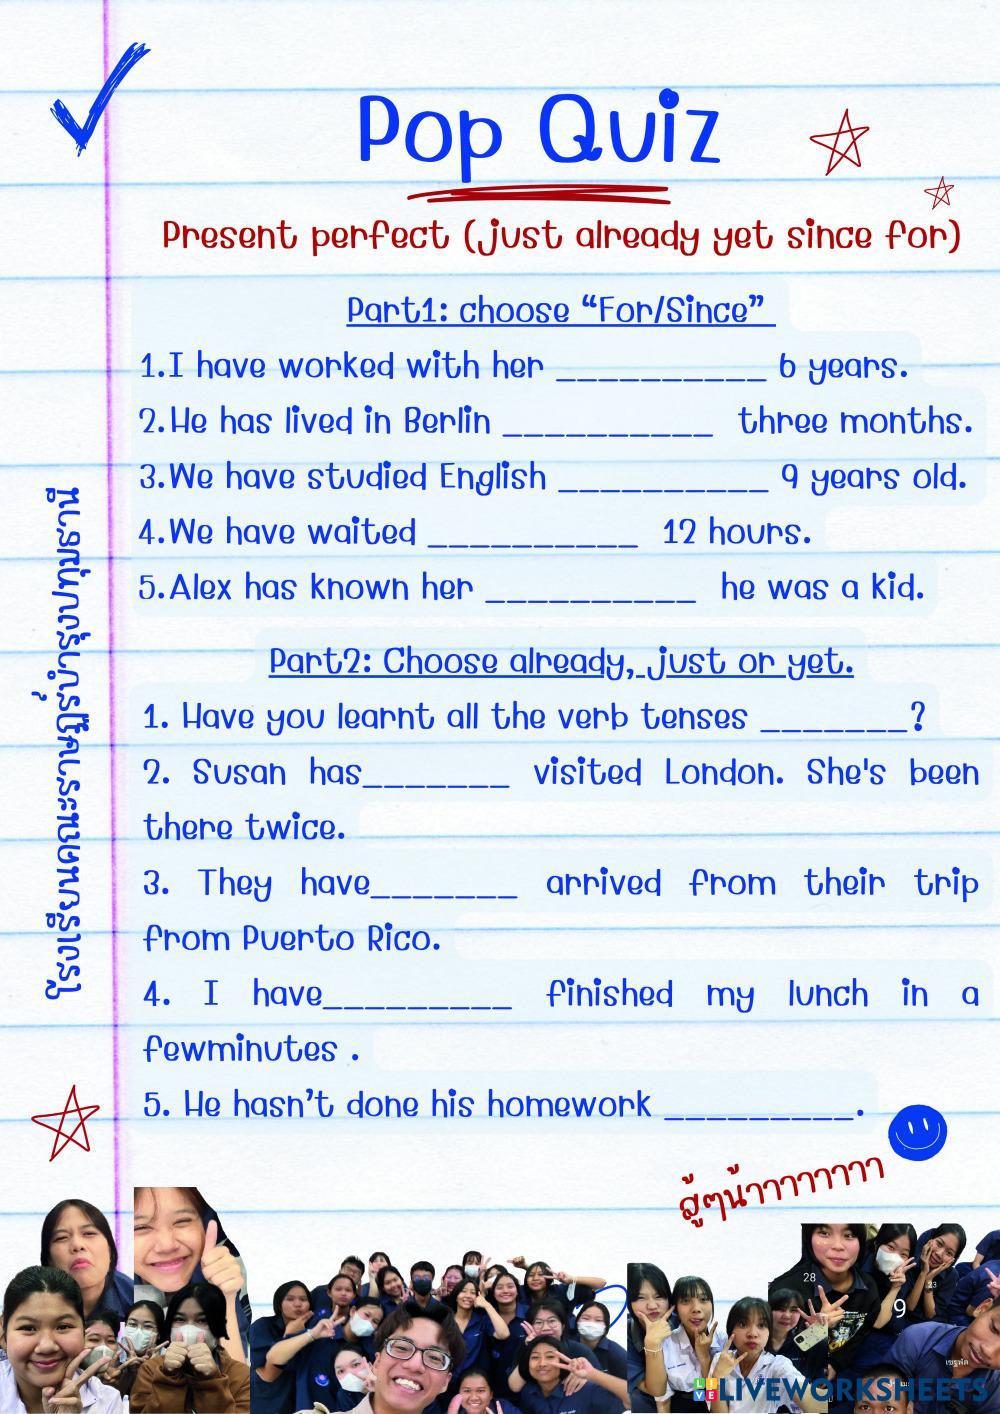 Pop Quiz
Present perfect (just already yet since for)
Part1: choose “For/Since”
1.I have worked with her __________ 6 years.
2.He has lived in Berlin __________ three months.
3.We have studied English __________ 9 years old.
4.We have waited __________ 12 hours.
5.Alex has known her __________ he was a kid.
Part2: Choose already, just or yet.
1. Have you learnt all the verb tenses _______?
2. Susan has_______ visited London. She's been
there twice.
3. They have_______ arrived from their trip
from Puerto Rico.
4. I have_________ finished my lunch in a
fewminutes .
5. He hasn’t done his homework _________.
โรงเรียนคณะราษฎร์บำรุงปทุมธานี
สู้ๆน้าาาาาาาา
28
23
9
เชฐพัด
LIVE LIVEWORKSHEETS